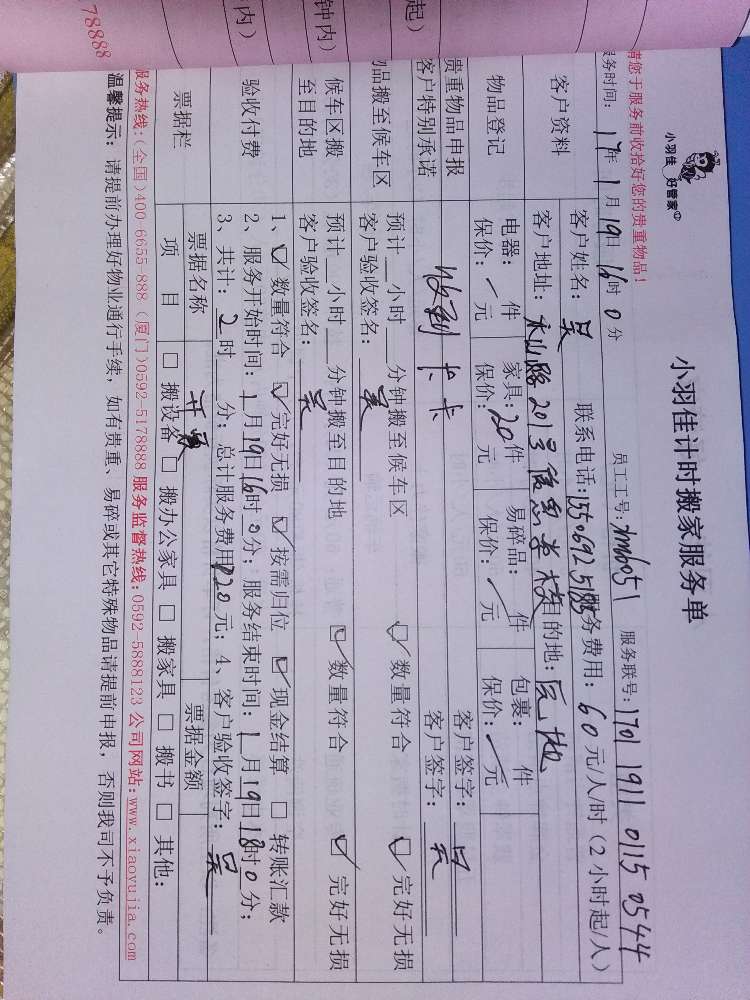 78888
内）
钟内）
起）
小羽佳 好管家
小羽佳计时搬家服务单
请您于服务前收拾好您的贵重物品！
服务时间：17年1月19日16时0分 员工工号：xm6051 服务联号：1701 1911 0115 0544
客户资料
客户姓名：吴 联系电话：15506925188 服务费用：60元/人/时（2小时起/人）
客户地址：水山路201号信息学校 目的地：原地
物品登记
电器： 件 家具：20件 易碎品： 件 包裹： 件
保价：/元 保价： 元 保价：/元 保价：/元
贵重物品申报 收到 客户签字：吴
客户特别承诺 客户签字：吴
物品搬至候车区
预计 小时 分钟搬至候车区 ☑ 数量符合 ☑ 完好无损
客户验收签名：吴
候车区搬至目的地
预计 小时 分钟搬至目的地 ☑ 数量符合 ☑ 完好无损
客户验收签名：吴
验收付费
1、☑ 数量符合 ☑ 完好无损 ☑ 按需归位 ☑ 现金结算 □ 转账汇款
2、服务开始时间：1月19日16时0分；服务结束时间：1月19日18时0分；
3、共计：2时 分；总计服务费用720元；4、客户验收签字：吴
票据栏
票据名称 票据金额
项目 □ 搬设备 □ 搬办公家具 □ 搬家具 □ 搬书 □ 其他：
服务热线：(全国)400-6655-888（厦门)0592-5178888 服务监督热线：0592-5888123 公司网站：www.xiaoyujia.com
温馨提示：请提前办理好物业通行手续，如有贵重、易碎或其它特殊物品请提前申报，否则我司不予负责。